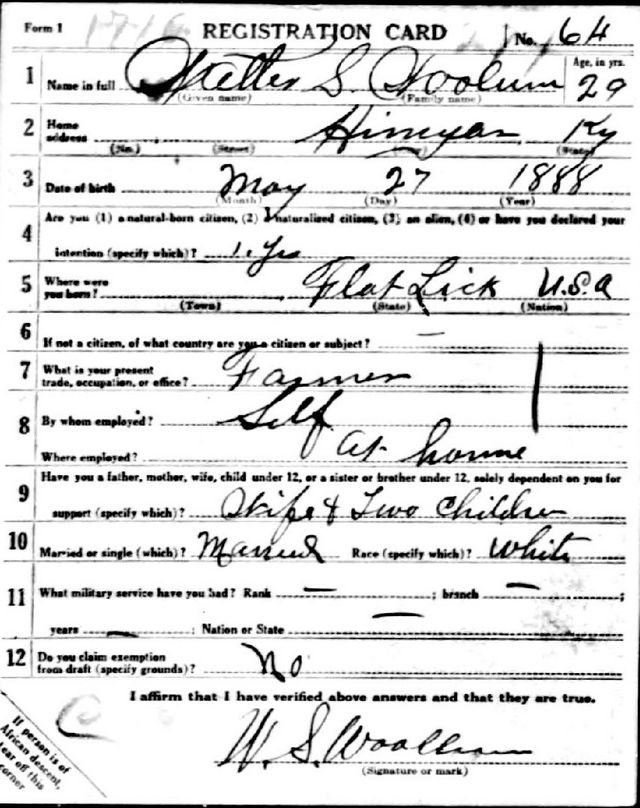 Form 1 1716 REGISTRATION CARD No. 64
1 Name in full S. Woolum Age, in yrs. 29
(Given name) (Family name)
2 Home address Himyar Ky
(No.) (Street) (City) (State)
3 Date of birth May 27 1888
(Month) (Day) (Year)
4 Are you (1) a natural-born citizen, (2) a naturalized citizen, (3) an alien, (4) or have you declared your
intention (specify which)? 1. Yes
5 Where were you born? Flat Lick U.S.A
(Town) (State) (Nation)
6 If not a citizen, of what country are you a citizen or subject? —
7 What is your present trade, occupation, or office? Farmer
8 By whom employed? Self
Where employed? at home
9 Have you a father, mother, wife, child under 12, or a sister or brother under 12, solely dependent on you for
support (specify which)? Wife & Two Children
10 Married or single (which)? Married Race (specify which)? White
11 What military service have you had? Rank — ; branch — ;
years — ; Nation or State —
12 Do you claim exemption from draft (specify grounds)? No
I affirm that I have verified above answers and that they are true.
W. S. Woollum
(Signature or mark)
If person is of
African descent,
tear off this
corner